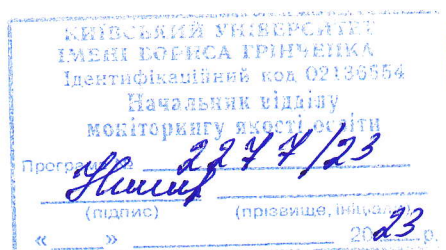 КИЇВСЬКИЙ УНІВЕРСИТЕТ
ІМЕНІ БОРИСА ГРІНЧЕНКА
Ідентифікаційний код 02136554
Начальник відділу
моніторингу якості освіти
Програма № 2277/23
(підпис) (прізвище, ініціали)
« » 2023 р.